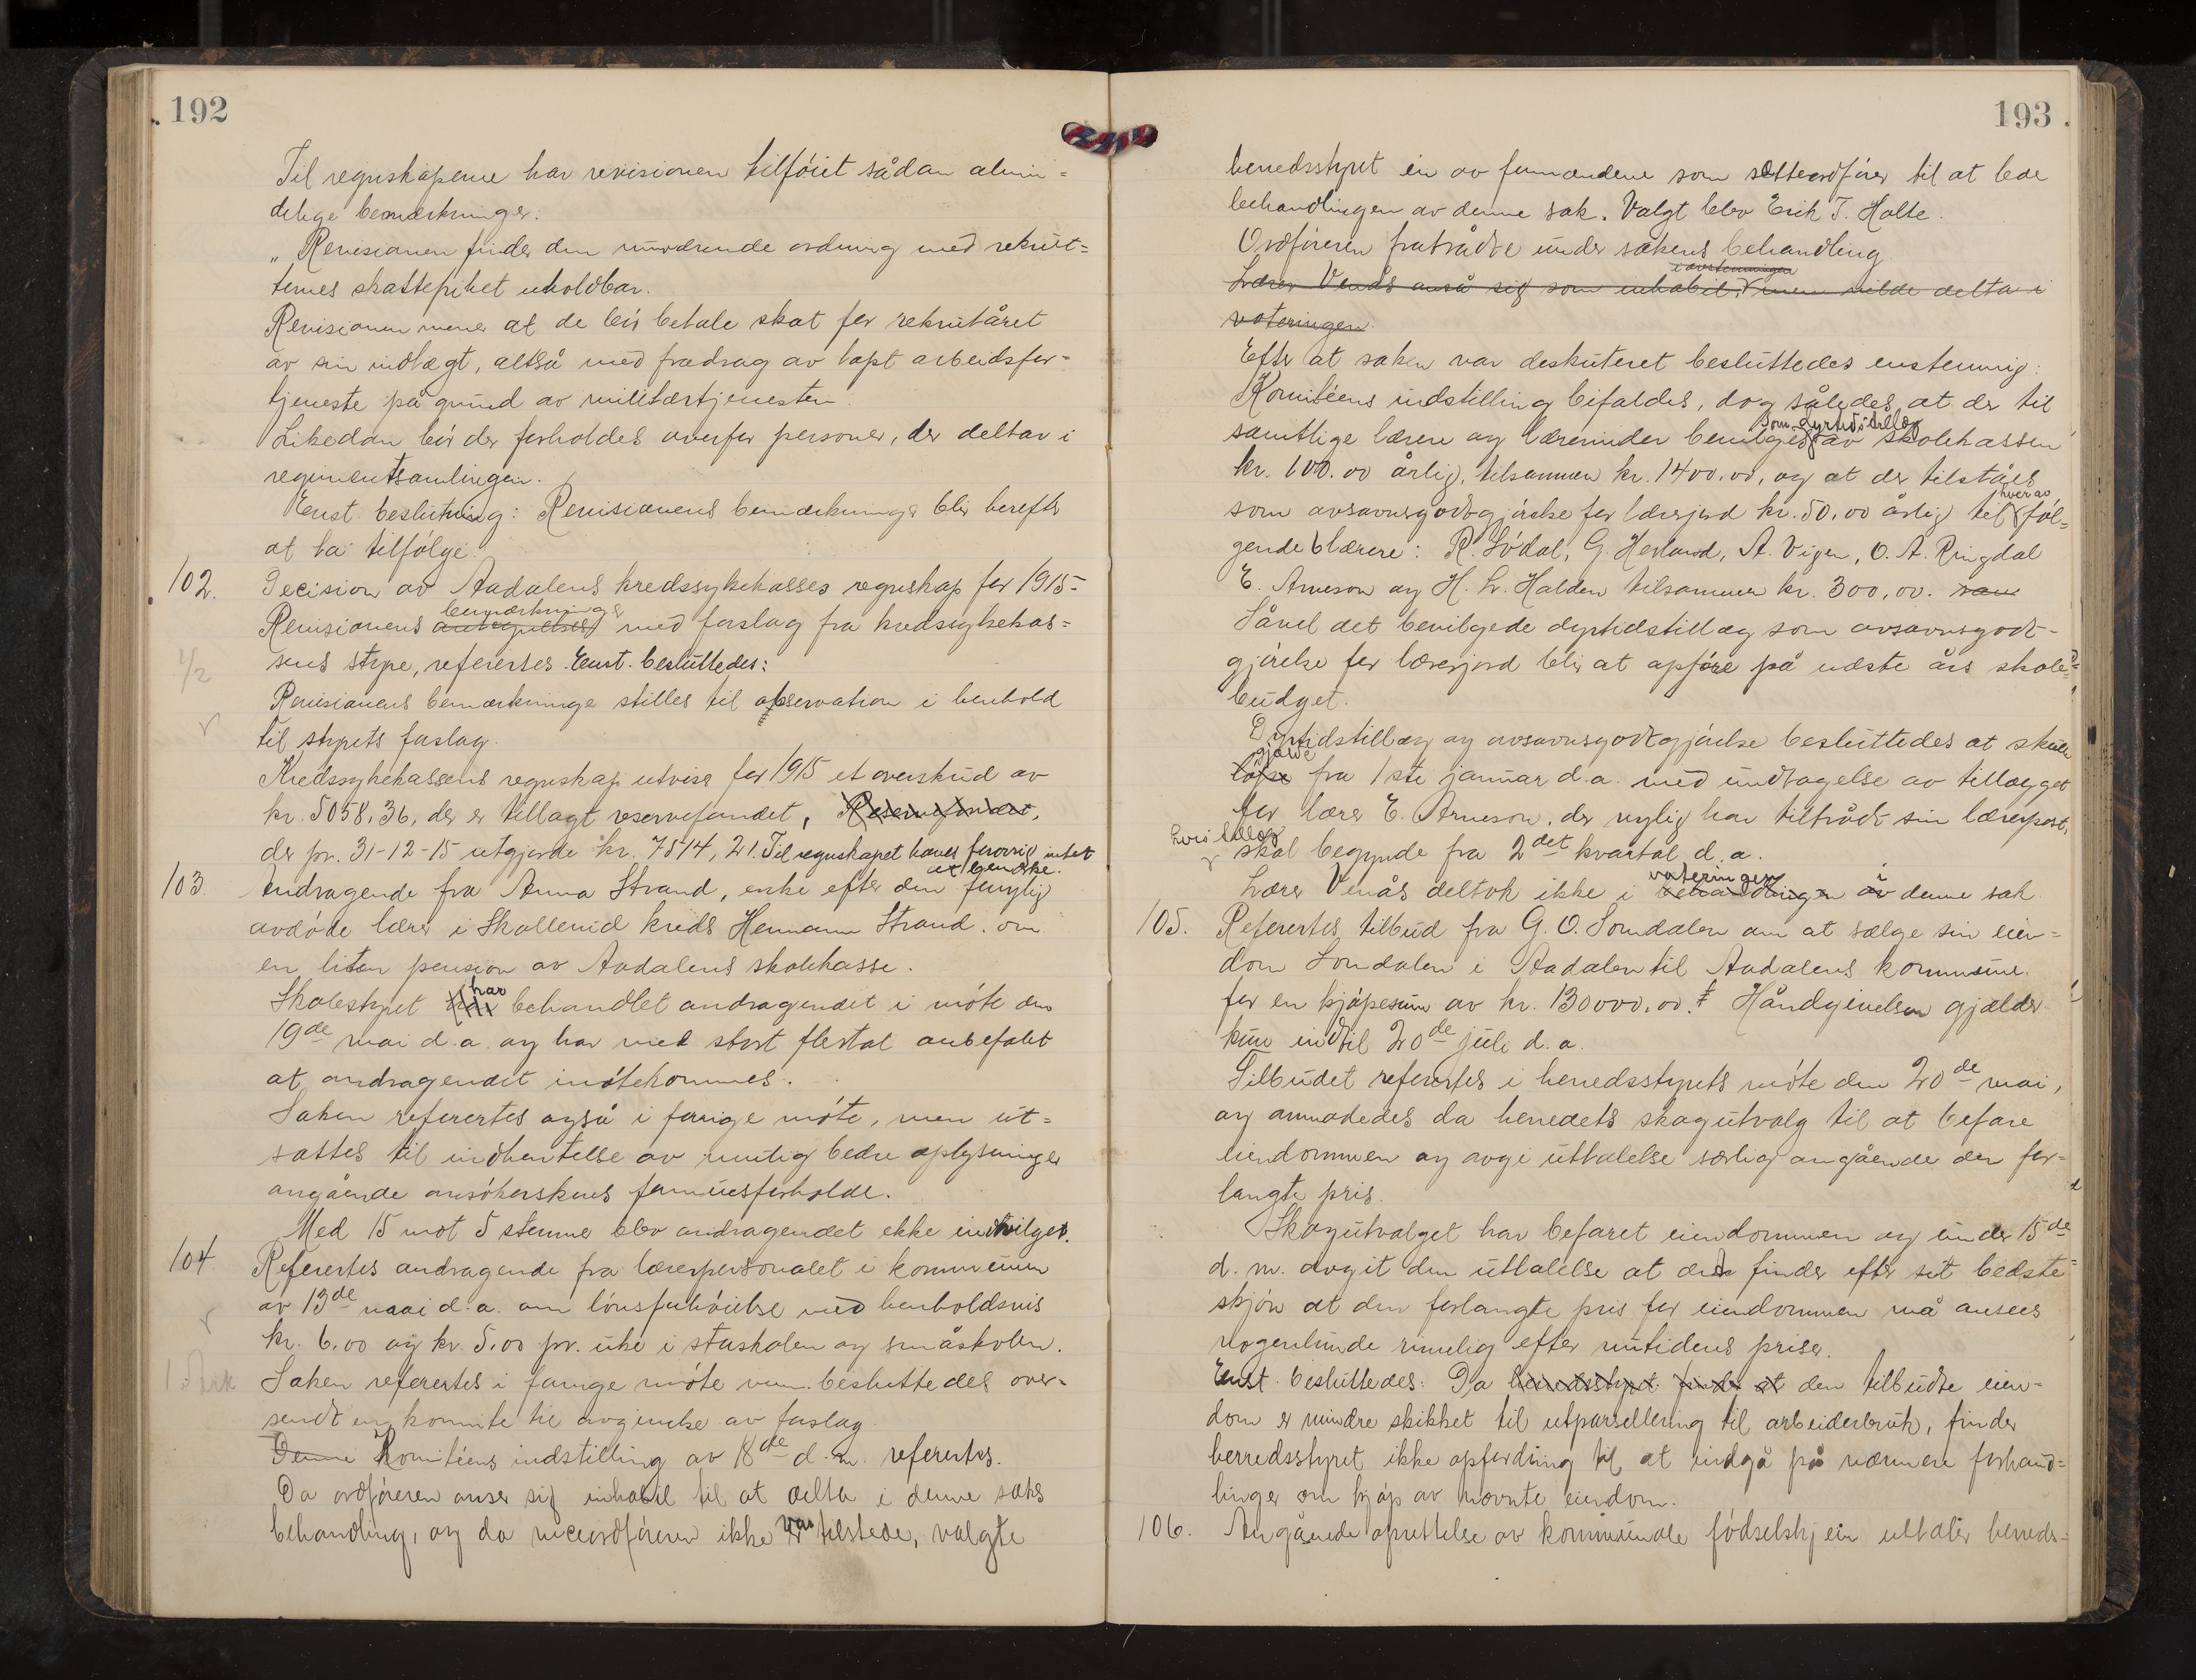 192
Til regnskaperne har revisionen tilføiet sådan almin=
delige bemærkninger:
„Revisionen finder den nuværende ordning med rekrut=
ternes skattepliket uholdbar.
Revisionen mener at de bör betale skat for rekrutåret
av sin indtægt, altså med fradrag av tapt arbeidsfor=
tjeneste på grund av militærtjenesten.
Likedan bör der forholdes overfor personer, der deltar i
regimentsamlingen.
Enst. beslutning: Revisionens bemærkninger blir herefter
at ta tilfölge.
102. Decision av Aadalens kredssykekasses regnskap for 1915-
bemærkninger
Revisionens antegnelser med forslag fra kredssykekas=
sens styre, referertes. Enst. besluttedes:
1/2
Revisionens bemærkninge stilles til observation i henhold
til styrets forslag.
Kredssykekassens regnskap utviser for 1915 et overskud av
kr. 5058,36, der er tillagt reservefondet, Reservefondet,
der pr. 31-12-15 utgjorde kr. 7514,21. Til regnskapet haves forøvrig intet
at bemerke.
103. Andragende fra Anna Strand, enke efter den fornylig
avdöde lærer i Skollerud kreds Hermann Strand, om
en liten pension av Aadalens skolekasse.
har
Skolestyret behandlet andragendet i möte den
19de mai d.a. og har med stort flertal anbefalet
at andragendet imötekommes.
Saken referertes også i forrige möte, men ut=
sattes til indhentelse av mulig bedre oplysninger
angående ansökerskens formuesforholde.
Med 15 mot 5 stemmer blev andragendet ikke indvilget.
104 Referertes andragende fra lærerpersonalet i kommunen
av 13de mai d.a. om lönsforhöielse med henholdsvis
kr. 6.00 og kr. 5.00 pr. uke i storskolen og småskolen.
Saken referertes i forrige möte men besluttedes over-
sendt en komite til avgivelse av forslag.
Denne Komitéens indstilling av 18de d.m. referertes.
Da ordföreren anser sig inhabil til at delta i denne saks
behandling, og da viceordföreren ikke var tilstede, valgte
193.
herredsstyret en av formændene som sætteordförer til at lede
behandlingen av denne sak. Valgt blev Erik T. Holte.
Ordföreren fratrådte under sakens behandling
i avstemningen
Lærer Venås anså sig som inhabil, men vilde delta i
voteringen.
Efter at saken var diskuteret besluttedes enstemmig:
Komitéens indstilling bifaldes, dog således at der til
som dyrtidstillæg
samtlige lærere og lærerinder bevilges av skolekassen
kr. 100.00 årlig, tilsammen kr. 1400.00, og at der tilståes
hver av
som avsavnsgodtgjörelse for lærerjord kr. 50,00 årlig til föl=
gende 6 lærere: R. Lödal, G. Hesland, A. Vigen, O. A. Ringdal
E. Arneson og H. L. Halden tilsammen kr. 300,00.
Såvel det bevilgede dyrtidstillæg som avsavnsgodt-
gjörelse for lærerjord blir at opföre på næste års skole=
budget.
Dyrtidstillæg og avsavnsgodtgjörelse besluttedes at skulle
gjælde
löpe fra 1ste januar d.a. med undtagelse av tillægget
for lærer E. Arneson, der nylig har tiltrådt sin lærerpost,
hvis tillæg
skal begynde fra 2det kvartal d.a.
voteringen i
Lærer Venås deltok ikke i behandlingen av denne sak.
105. Referertes tilbud fra G. O. Somdalen om at sælge sin eien=
dom Somdalen i Aadalen til Aadalens kommune.
for en kjöpesum av kr. 130000.00. Håndgivelsen gjælder
kun indtil 20de juli d.a.
Tilbudet referertes i herredsstyrets möte den 20de mai,
og anmodedes da herredets skogutvalg til at befare
eiendommen og avgi uttalelse særlig angående den for=
langte pris.
Skogutvalget har befaret eiendommen og under 15de
d.m. avgit den uttalelse at det finder efter sit bedste
skjön at den forlangte pris for eiendommen må ansees
nogenlunde rimelig efter nutidens priser.
Enst. besluttedes: Da herredsstyret finder at den tilbudte eien-
dom er mindre skikket til utparsellering til arbeiderbruk, finder
herredsstyret ikke opfordring til at indgå på nærmere forhand=
linger om kjöp av nævnte eiendom.
106. Angående oprettelse av kommunale födselshjem uttaler herreds-